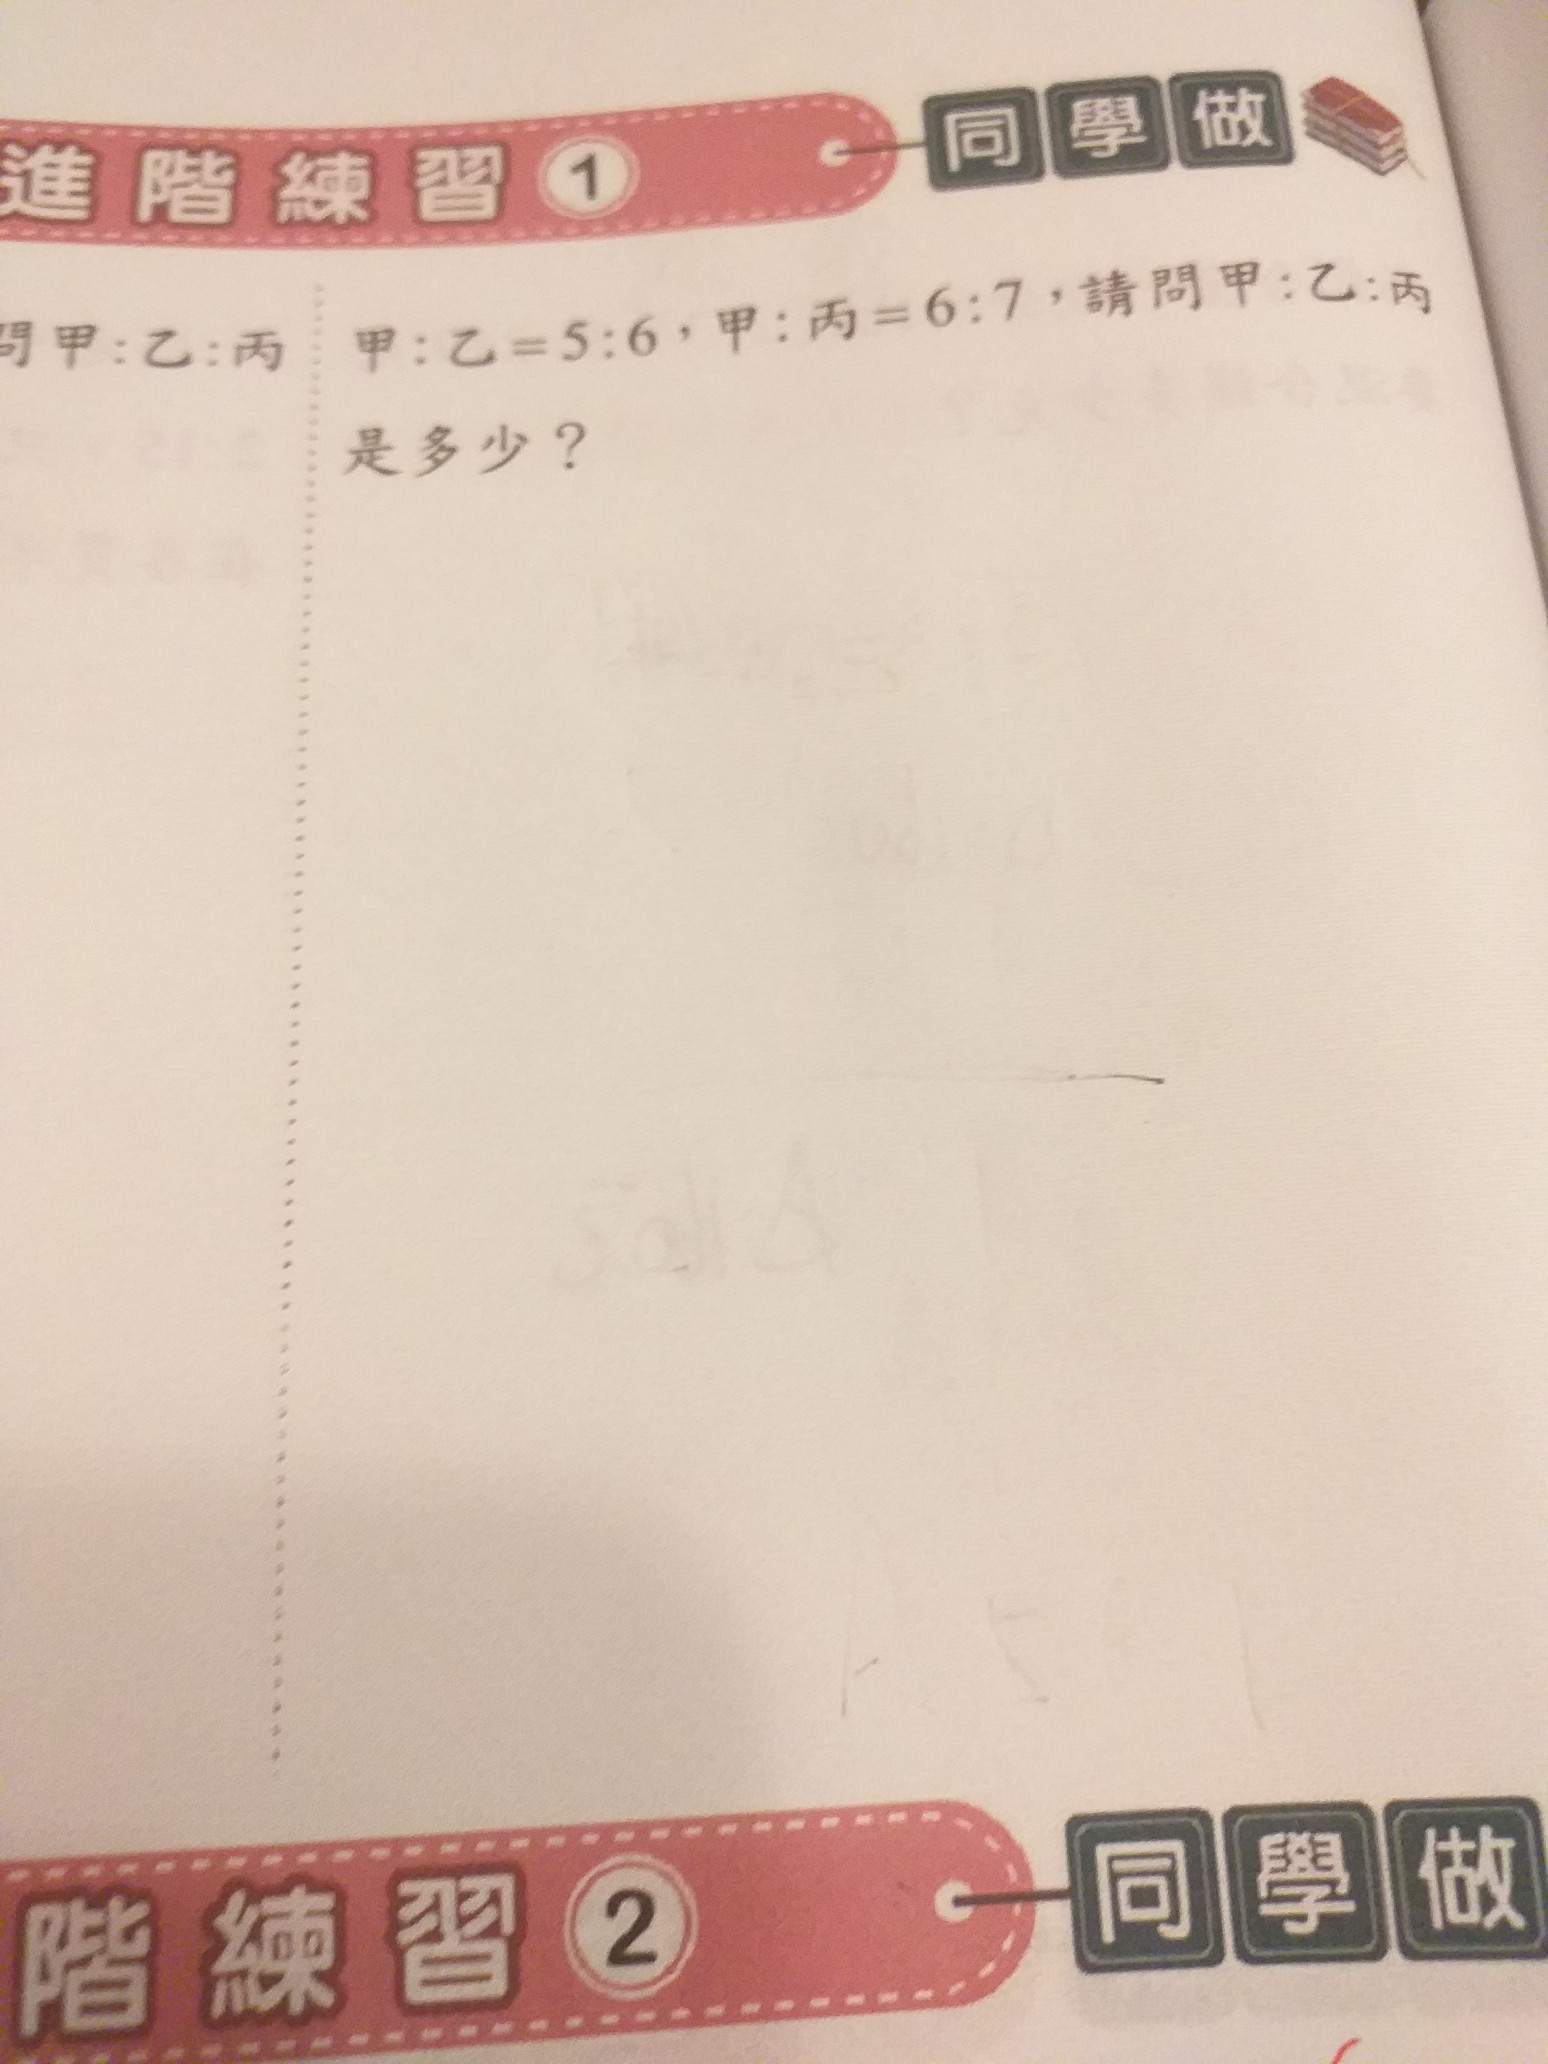 進階練習1 同學做
問甲:乙:丙
甲:乙=5:6,甲:丙=6:7,請問甲:乙:丙
是多少?
階練習2 同學做